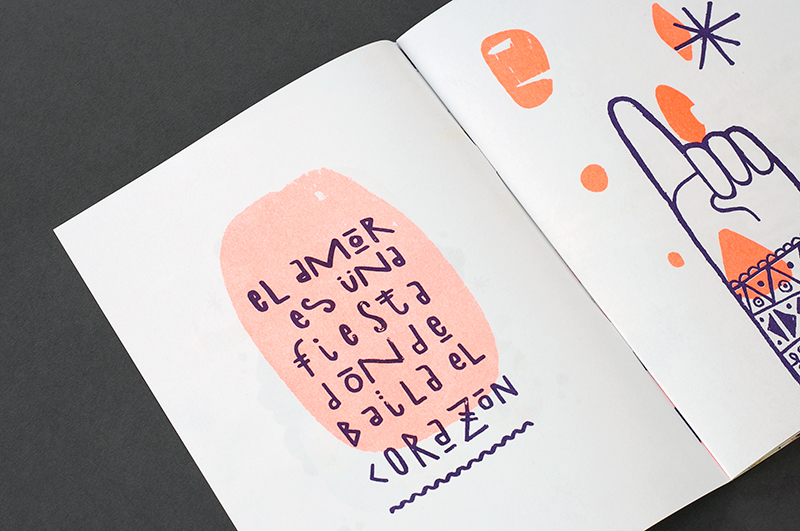 eL aMōR
es üna
fiesta
dōNde
Baila eL
CORaZōN